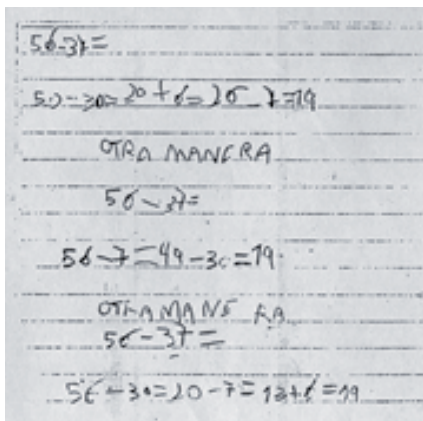 56-37=
50-30=20+6=26-7=19
OTRA MANERA
56-37=
56-7=49-30=19
OTRA MANE RA
56-37=
56-30=20-7=13+6=19